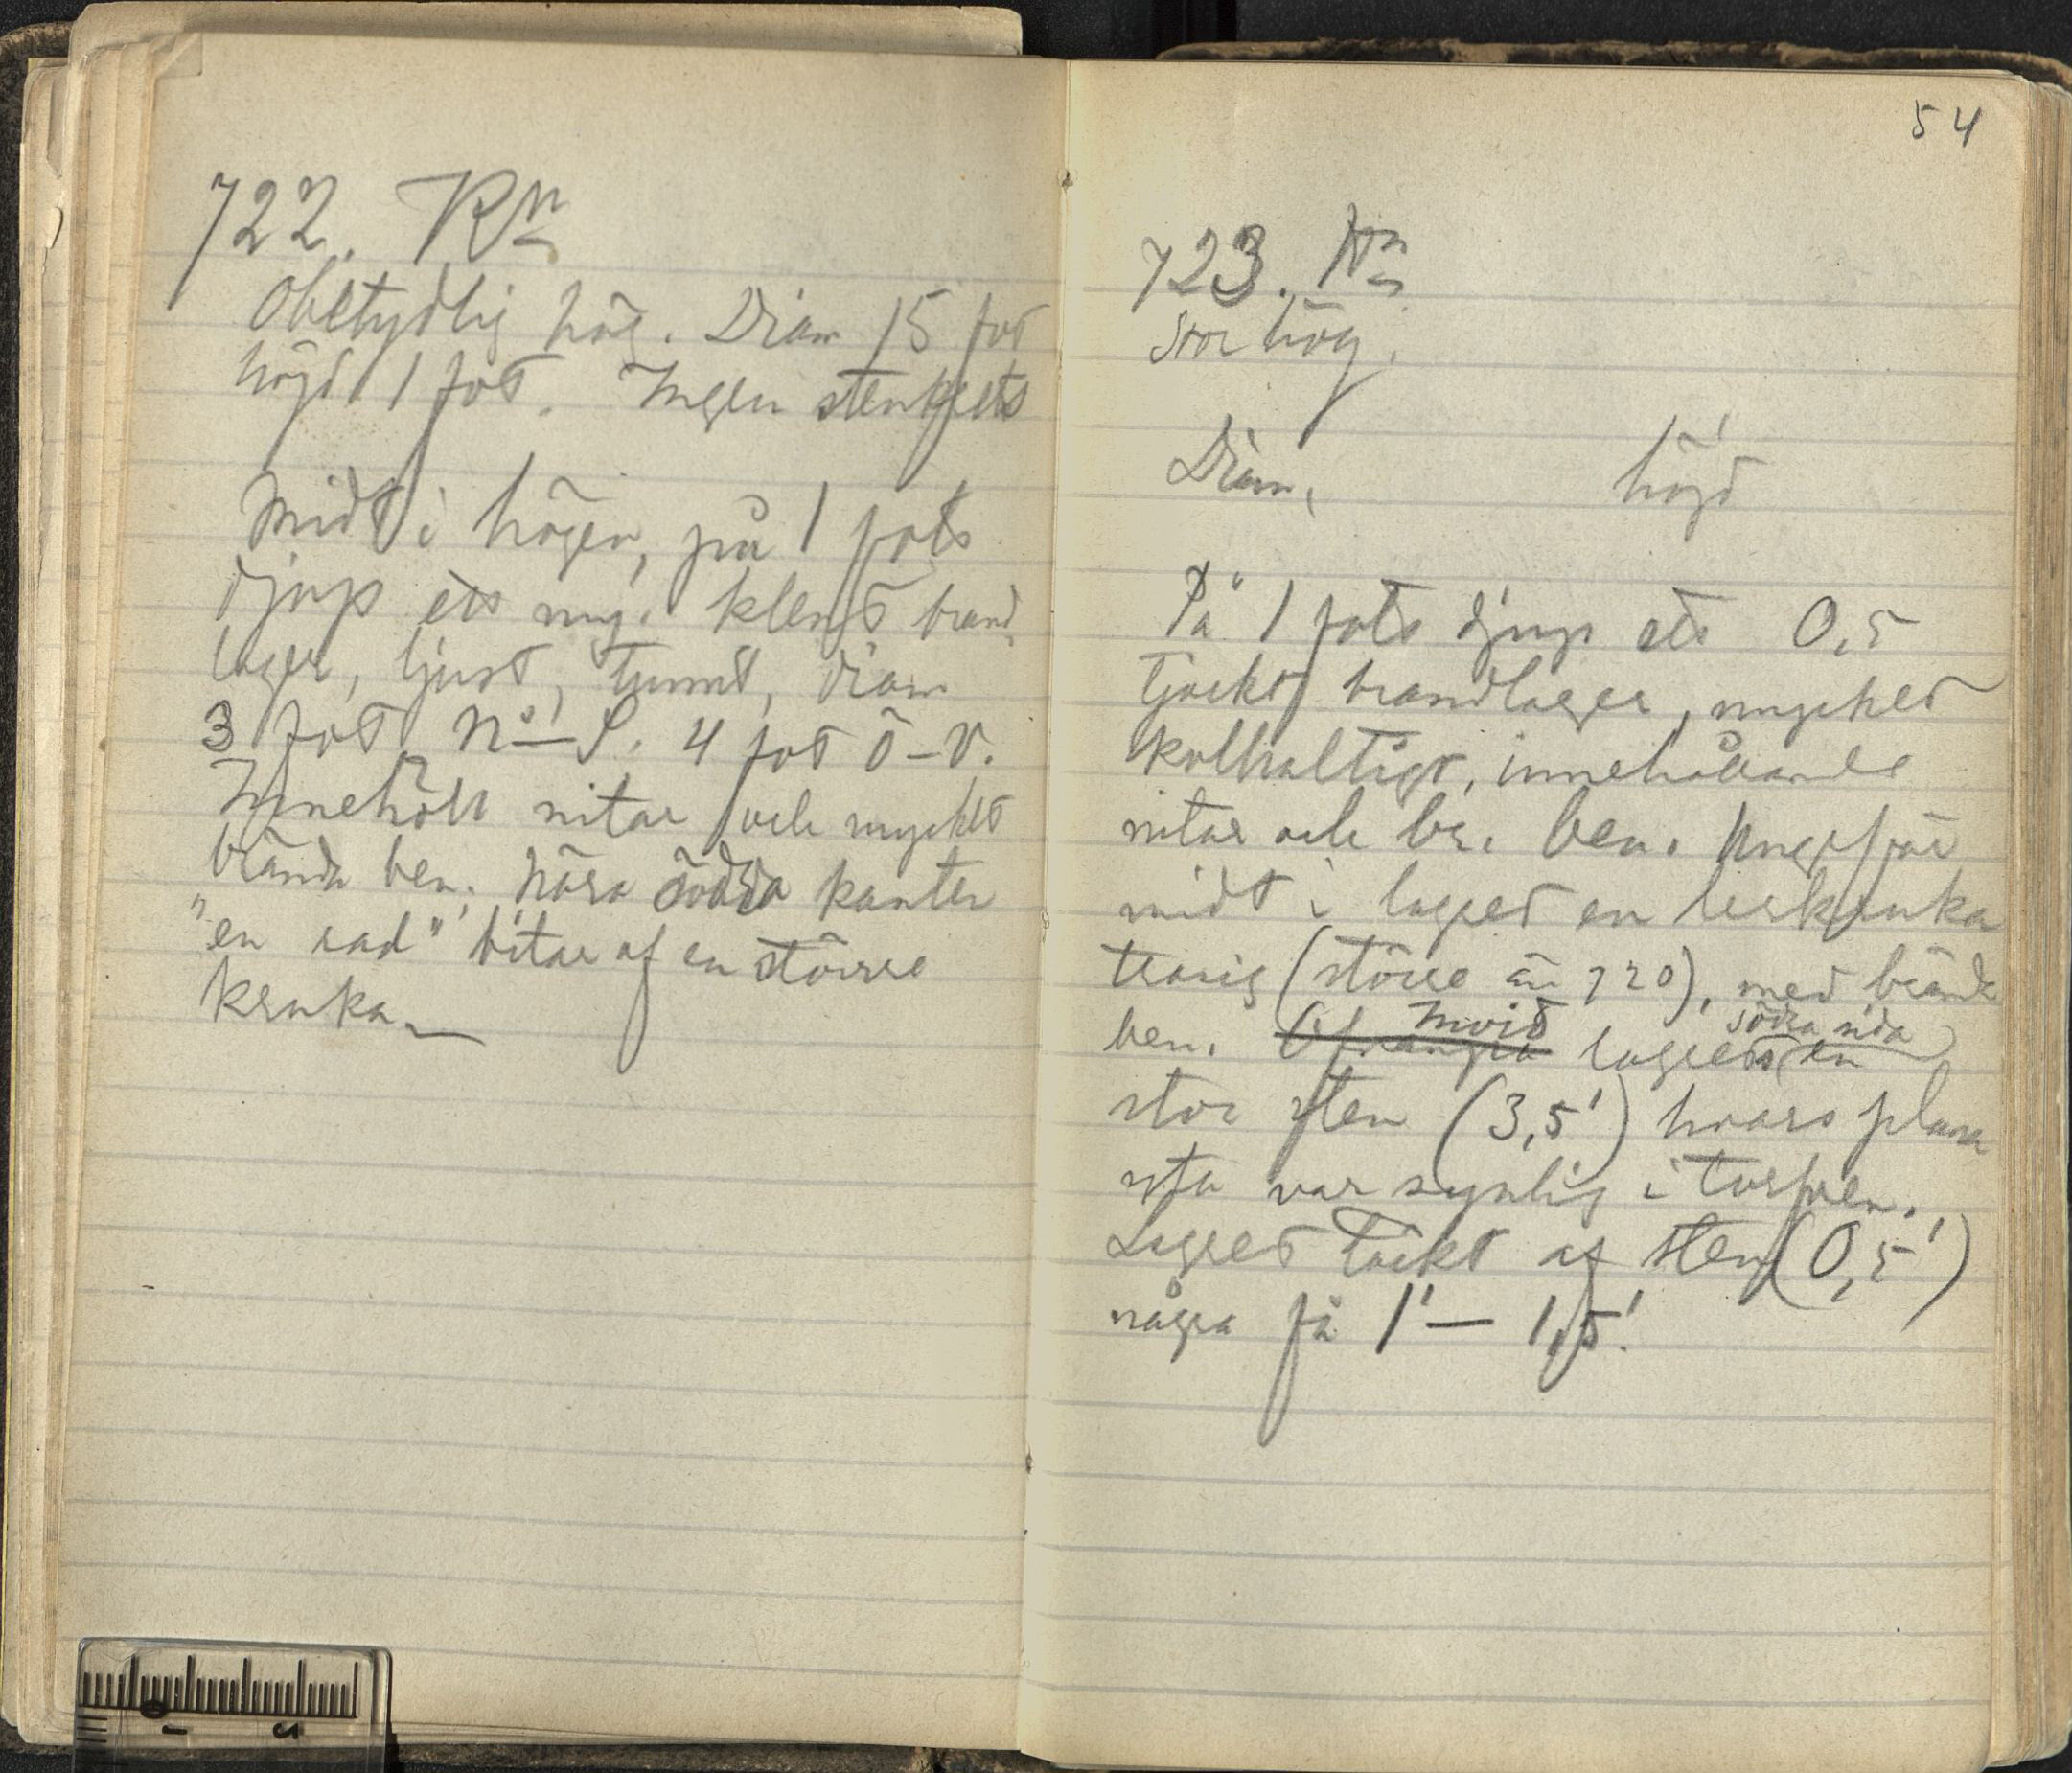 722. Rn
Obetydlig hög. Diam 15 fot
höjd 1 fot. Ingen stenkrets
Midt i högen, på 1 fots
djup ett myc. klent brand-
lager, ljust, tunnt, diam
3 fot N–S. 4 fot Ö–V.
Innehöll nitar och mycket
brända ben. Nära södra kanten
"en rad" bitar af en större
kruka
54
723.
Stor hög.
Diam. höjd
På 1 fots djup ett 0,5'
tjockt brandlager, mycket
kolhaltigt, innehållande
nitar och br. ben. Ungefär
midt i lagret en lerkruka
trasig (större än 720), med brända
Invid södra sida
ben. lagrets en
stor sten (3,5') hvars plana
yta var synlig i torfven.
Lagret täckt af sten (0,5')
några få 1' – 1,5'.